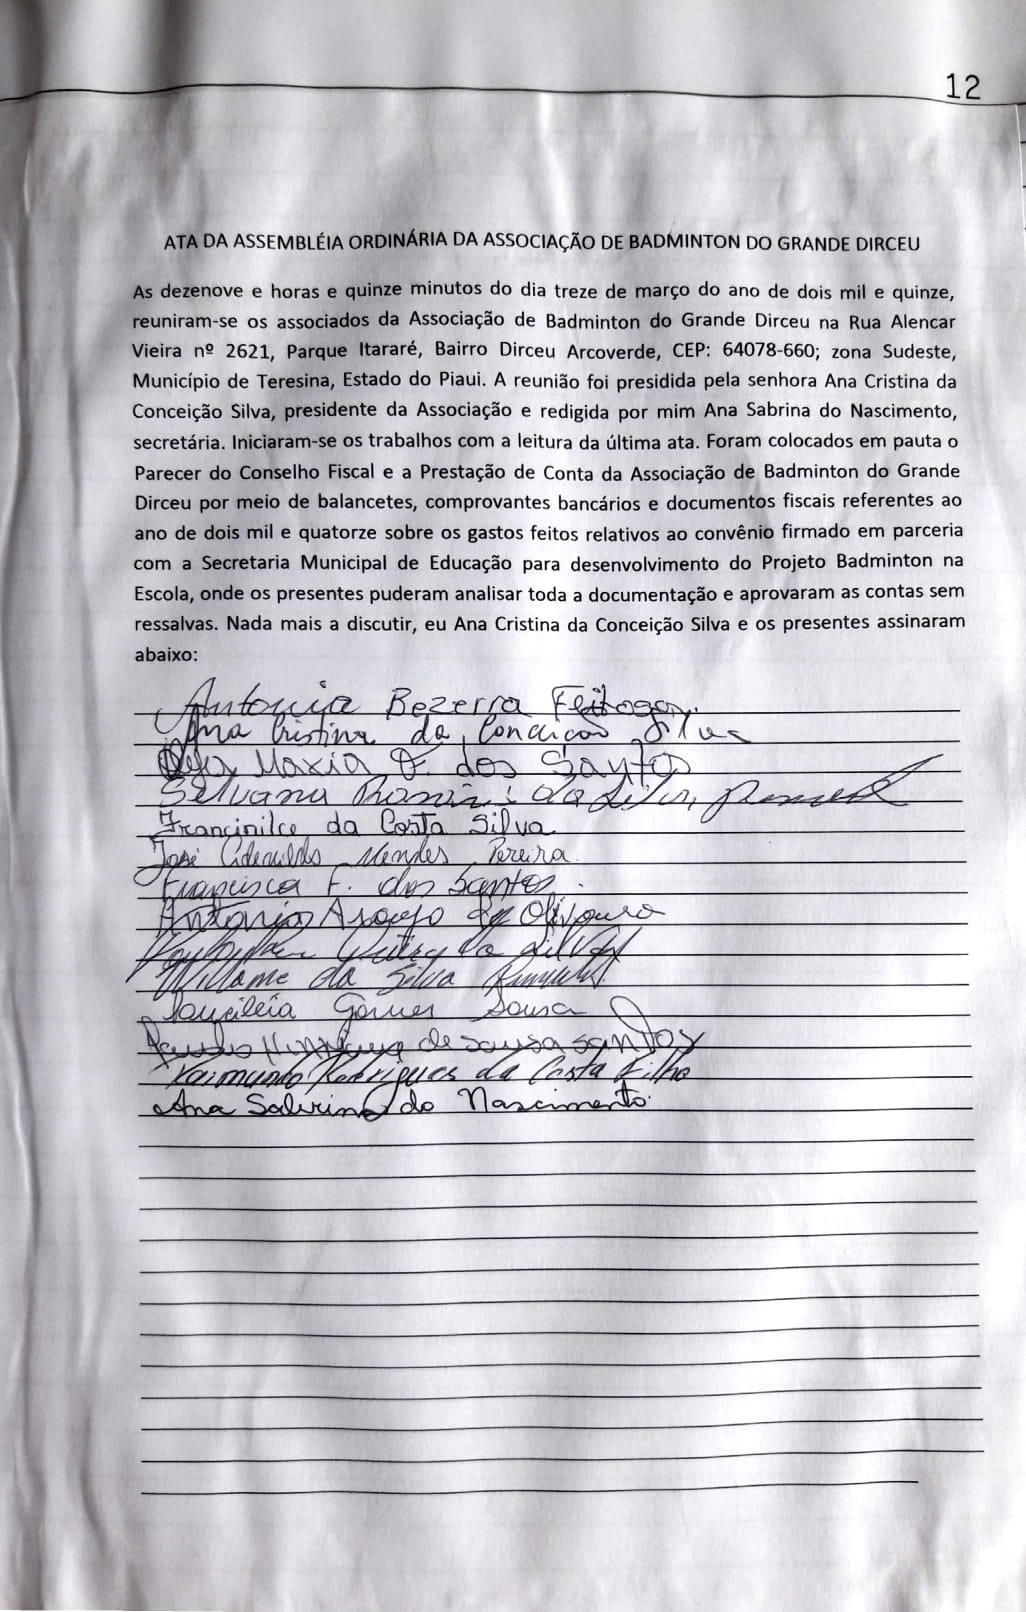 12
ATA DA ASSEMBLÉIA ORDINÁRIA DA ASSOCIAÇÃO DE BADMINTON DO GRANDE DIRCEU
As dezenove e horas e quinze minutos do dia treze de março do ano de dois mil e quinze,
reuniram-se os associados da Associação de Badminton do Grande Dirceu na Rua Alencar
Vieira nº 2621, Parque Itararé, Bairro Dirceu Arcoverde, CEP: 64078-660; zona Sudeste,
Município de Teresina, Estado do Piaui. A reunião foi presidida pela senhora Ana Cristina da
Conceição Silva, presidente da Associação e redigida por mim Ana Sabrina do Nascimento,
secretária. Iniciaram-se os trabalhos com a leitura da última ata. Foram colocados em pauta o
Parecer do Conselho Fiscal e a Prestação de Conta da Associação de Badminton do Grande
Dirceu por meio de balancetes, comprovantes bancários e documentos fiscais referentes ao
ano de dois mil e quatorze sobre os gastos feitos relativos ao convênio firmado em parceria
com a Secretaria Municipal de Educação para desenvolvimento do Projeto Badminton na
Escola, onde os presentes puderam analisar toda a documentação e aprovaram as contas sem
ressalvas. Nada mais a discutir, eu Ana Cristina da Conceição Silva e os presentes assinaram
abaixo:
Antonia Bezerra
Ana Cristina da Conceicao Silva
Maria dos Santos
Silvana da Silva
Francinilce da Costa Silva
José Mendes Pereira
Francisca F. dos Santos
Antonio Araujo de
da Silva
Willame da Silva
Gomes Sousa
de Sousa Santos
Raimundo Rodrigues da Costa Filho
Ana Sabrina do Nascimento